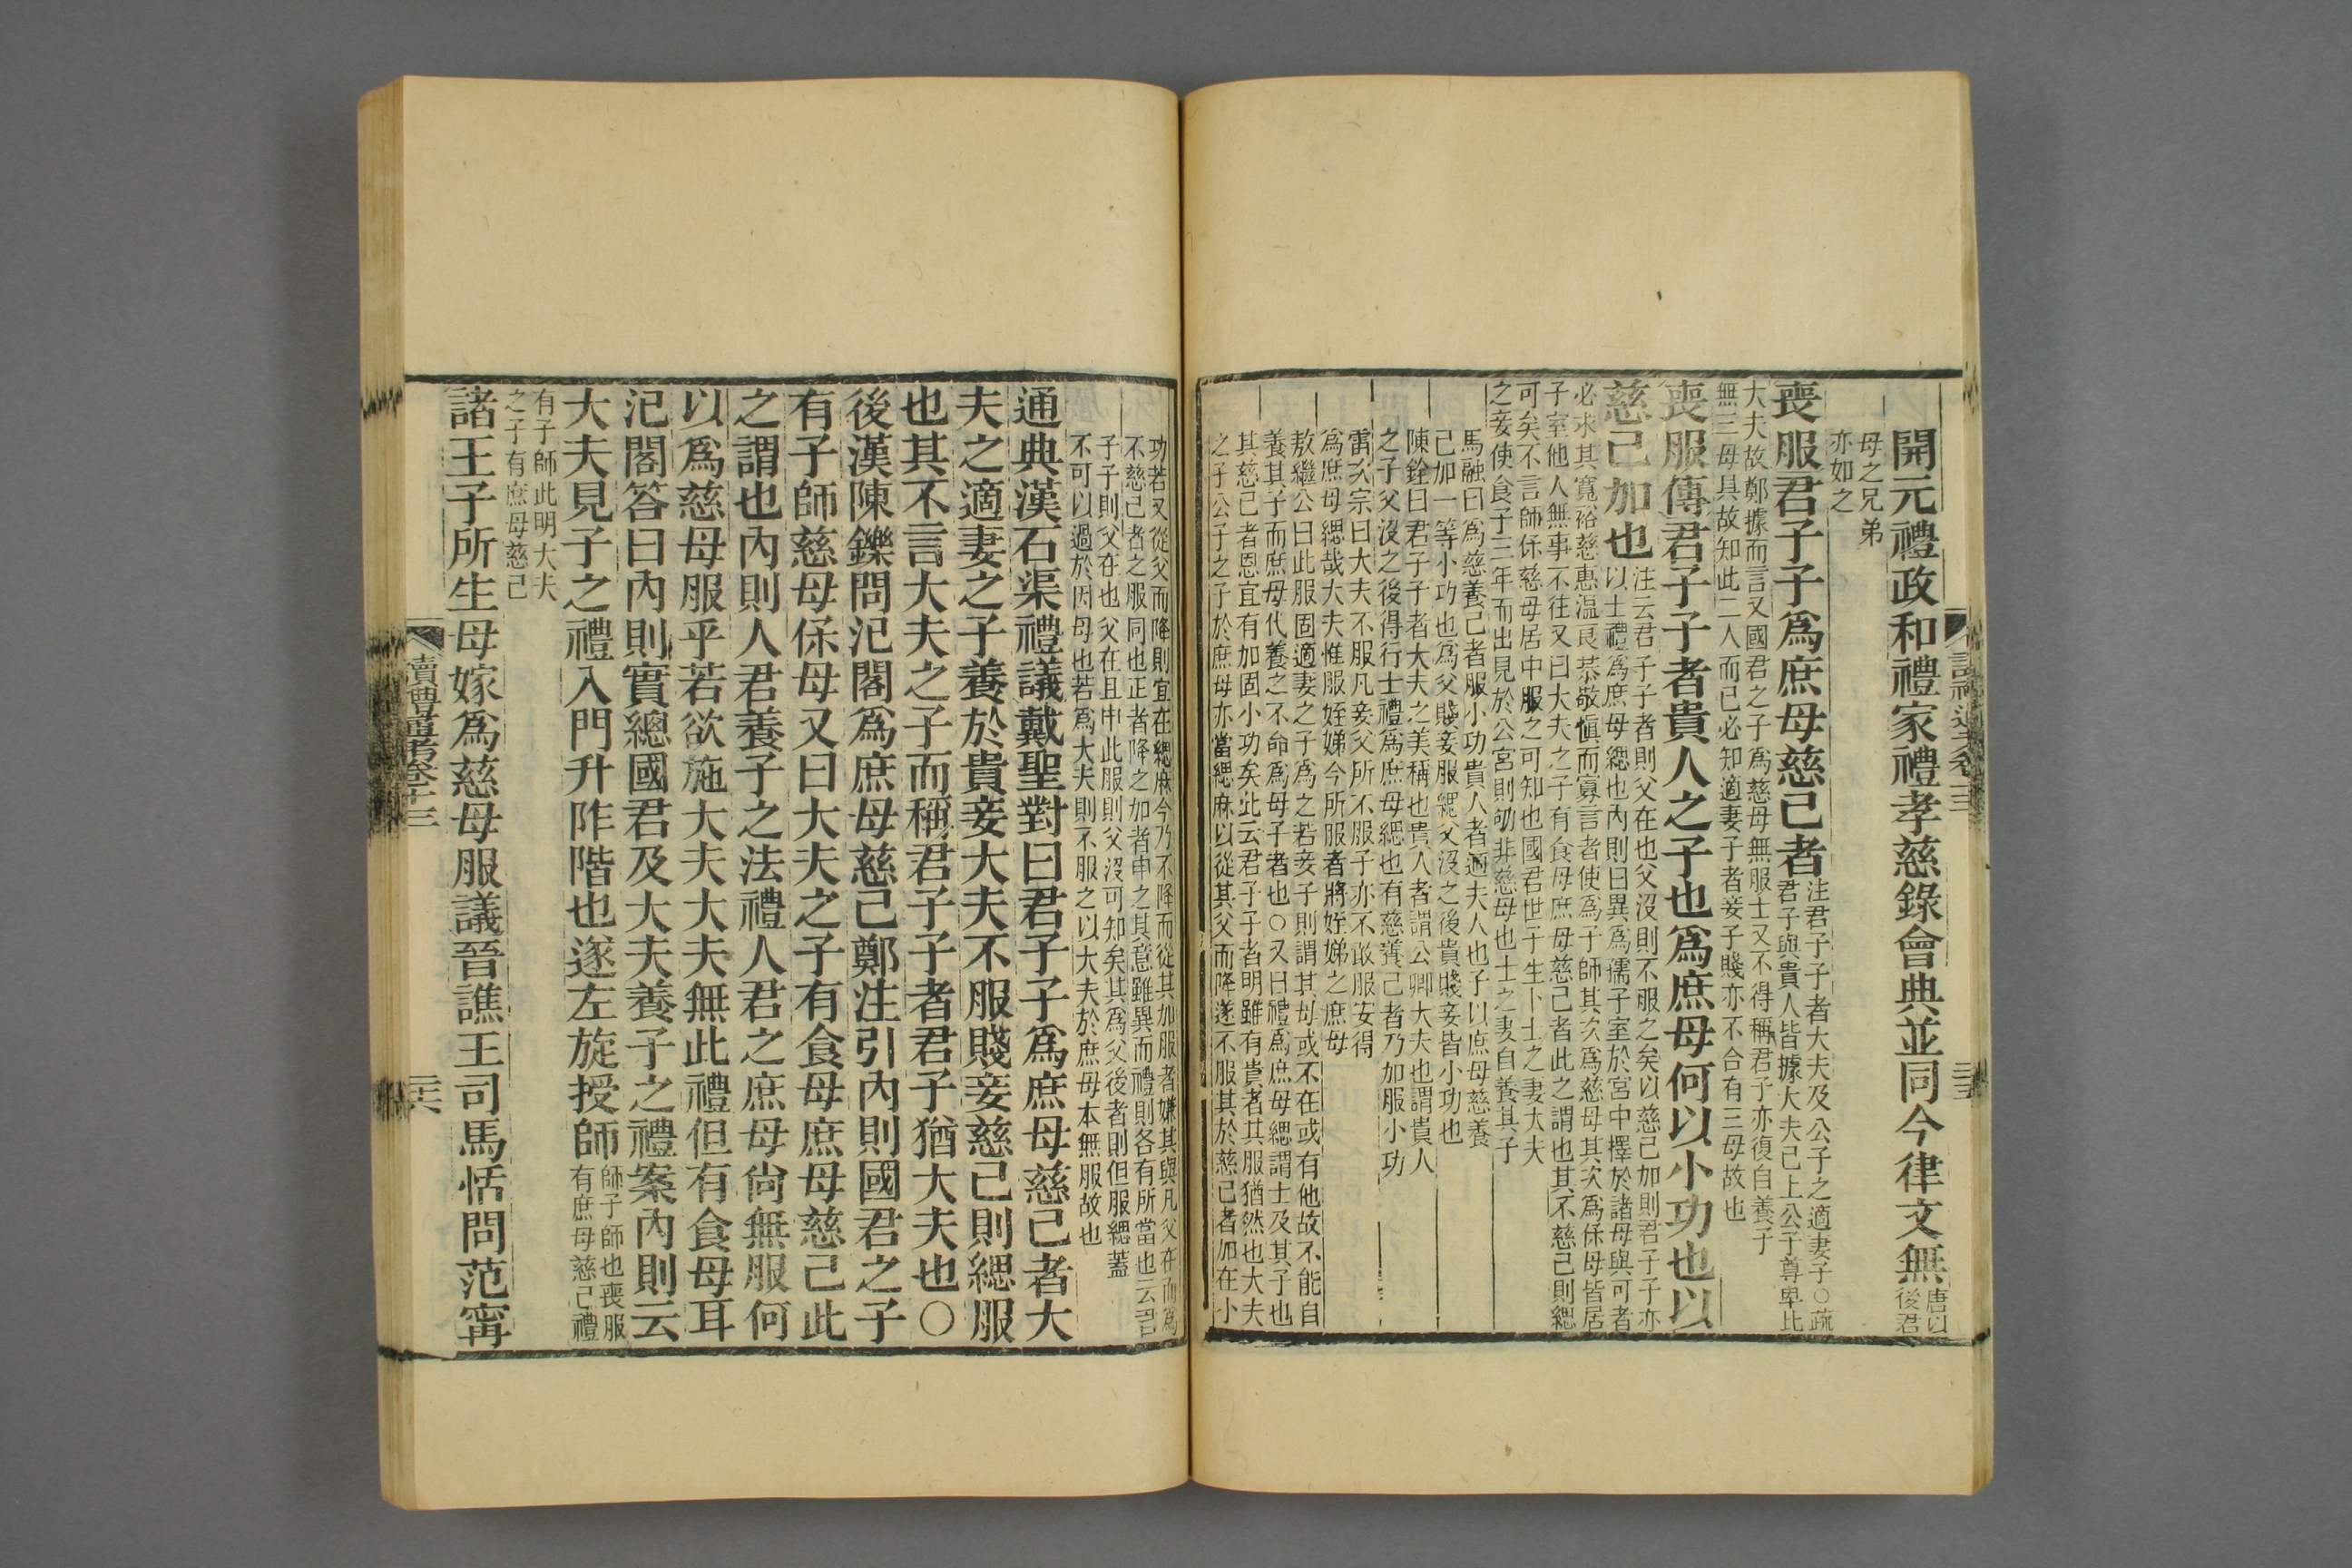 開元禮政和禮家禮孝慈錄會典並同今律文無唐以後君
母之兄弟
亦如之
喪服君子子爲庶母慈己者注君子子者大夫及公子之適妻子○疏君子與貴人皆據大夫已上公子尊卑比
大夫故鄭據而言又國君之子爲慈母無服士又不得稱君子亦復自養子
無三母具故知此二人而已必知適妻子者妾子賤亦不合有三母故也
喪服傳君子子者貴人之子也爲庶母何以小功也以
慈己加也注云君子子者則父在也父沒則不服之矣以慈己加則君子子亦以士禮爲庶母緦也內則曰異爲孺子室於宮中擇於諸母與可者
必求其寬裕慈惠温良恭敬愼而寡言者使爲子師其次爲慈母其次爲保母皆居
子室他人無事不往又曰大夫之子有食母庶母慈己者此之謂也其不慈己則緦
可矣不言師保慈母居中服之可知也國君世子生卜士之妻大夫
之妾使食子三年而出見於公宮則劬非慈母也士之妻自養其子
馬融曰爲慈養己者服小功貴人者適夫人也子以庶母慈養
己加一等小功也爲父賤妾服緦父沒之後貴賤妾皆小功也
陳銓曰君子子者大夫之美稱也貴人者謂公卿大夫也謂貴人
之子父沒之後得行士禮爲庶母緦也有慈養己者乃加服小功
雷次宗曰大夫不服凡妾父所不服子亦不敢服安得
爲庶母緦哉大夫惟服姪娣今所服者將姪娣之庶母
敖繼公曰此服固適妻之子爲之若妾子則謂其母或不在或有他故不能自
養其子而庶母代養之不命爲母子者也○又曰禮爲庶母緦謂士及其子也
其慈己者恩宜有加固小功矣此云君子子者明雖有貴者其服猶然也大夫
之子公子之子於庶母亦當緦麻以從其父而降遂不服其於慈己者加在小
功若又從父而降則宜在緦麻今乃不降而從其加服者嫌其與凡父在而爲
不慈己者之服同也正者降之加者申之其意雖異而禮則各有所當也云君
子子則父在也父在且申此服則父沒可知矣其爲父後者則但服緦蓋
不可以過於因母也若爲大夫則不服之以大夫於庶母本無服故也
通典漢石渠禮議戴聖對曰君子子爲庶母慈己者大
夫之適妻之子養於貴妾大夫不服賤妾慈己則緦服
也其不言大夫之子而稱君子子者君子猶大夫也○
後漢陳鑠問汜閣爲庶母慈己鄭注引內則國君之子
有子師慈母保母又曰大夫之子有食母庶母慈己此
之謂也內則人君養子之法禮人君之庶母尙無服何
以爲慈母服乎若欲施大夫大夫無此禮但有食母耳
汜閣答曰內則實總國君及大夫養子之禮案內則云
大夫見子之禮入門升阼階也遂左旋授師師子師也喪服有庶母慈己禮
有子師此明大夫
之子有庶母慈己
諸王子所生母嫁爲慈母服議晉譙王司馬恬問范寗
讀禮通考卷十三